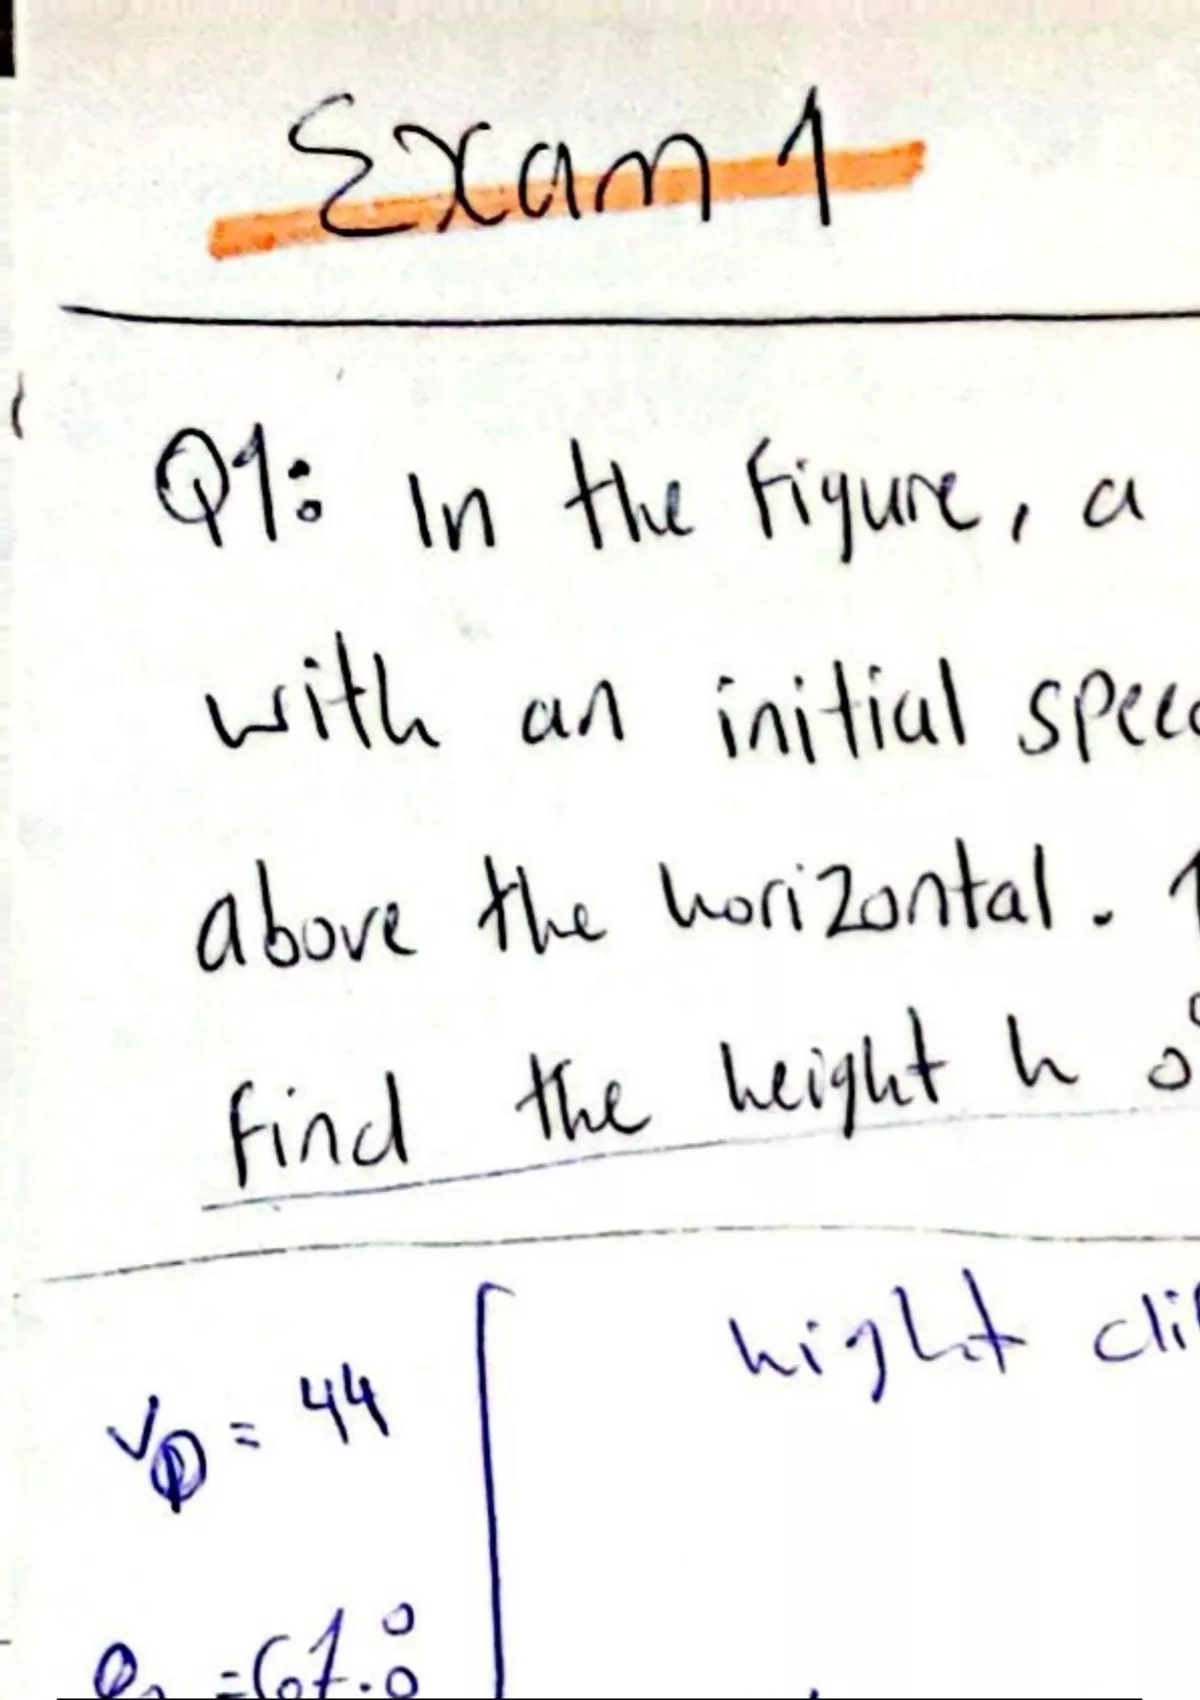 Exam 1
Q1: In the Figure, a
with an initial speed
above the horizontal.
find the height h
hight
v0 = 44